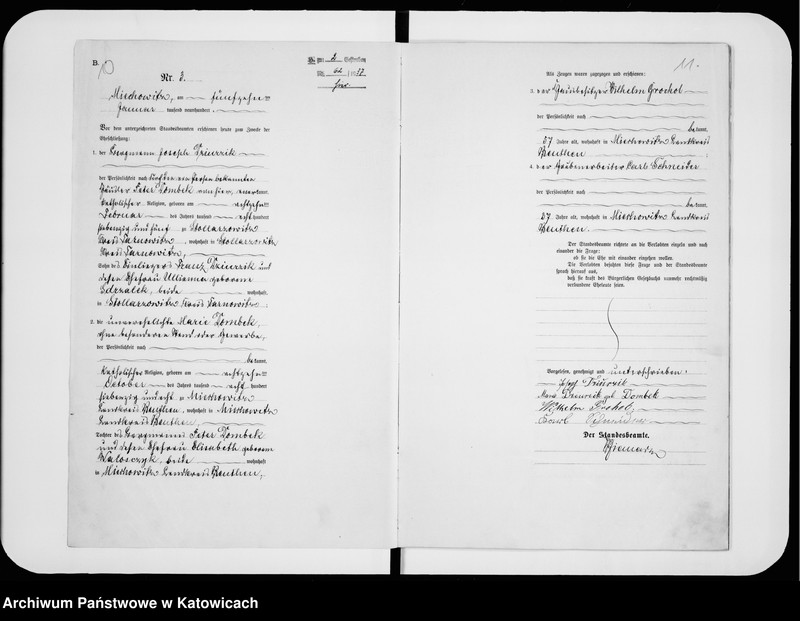 B.
10
Nr. 3.
Mischowitz, am fünfzehnten
Januar tausend neunhundert
Vor dem unterzeichneten Standesbeamten erschienen heute zum Zwecke der
Eheschließung:
1. der Bergmann Joseph
der Persönlichkeit nach durch den von Person bekannten
Häusler Peter Dombek von hier, anerkannt,
katholischer Religion, geboren am achtzehnten
Februar des Jahres tausend acht hundert
siebenzig und fünf zu Stollarzowitz
Kreis Tarnowitz, wohnhaft in Stollarzowitz
Kreis Tarnowitz,
Sohn des Einliegers Franz und
dessen Ehefrau Julianna geborene
beide wohnhaft
in Stollarzowitz Kreis Tarnowitz;
2. die unverehelichte Marie Dombek,
ohne besonderen Stand oder Gewerbe,
der Persönlichkeit nach
bekannt,
katholischer Religion, geboren am achtzehnten
October des Jahres tausend acht hundert
siebenzig und acht zu Mischowitz
Landkreis Beuthen, wohnhaft in Mischowitz
Landkreis Beuthen,
Tochter des Bergmanns Peter Dombek
und dessen Ehefrau Elisabeth geborene
Waloszczyk, beide wohnhaft
in Mischowitz Landkreis Beuthen,
11.
Als Zeugen waren zugezogen und erschienen:
3. der Hausbesitzer Wilhelm Grochol
der Persönlichkeit nach
bekannt,
37 Jahre alt, wohnhaft in Mischowitz Landkreis
Beuthen;
4. der Grubenarbeiter Carl Schneider
der Persönlichkeit nach
bekannt,
37 Jahre alt, wohnhaft in Mischowitz Landkreis
Beuthen.
Der Standesbeamte richtete an die Verlobten einzeln und nach
einander die Frage:
ob sie die Ehe mit einander eingehen wollen.
Die Verlobten bejahten diese Frage und der Standesbeamte
sprach hierauf aus,
daß sie kraft des Bürgerlichen Gesetzbuchs nunmehr rechtmäßig
verbundene Eheleute seien.
Vorgelesen, genehmigt und unterschrieben:
Marie geb. Dombek
Wilhelm Grochol
Carl Schneider
Der Standesbeamte.
Archiwum Państwowe w Katowicach